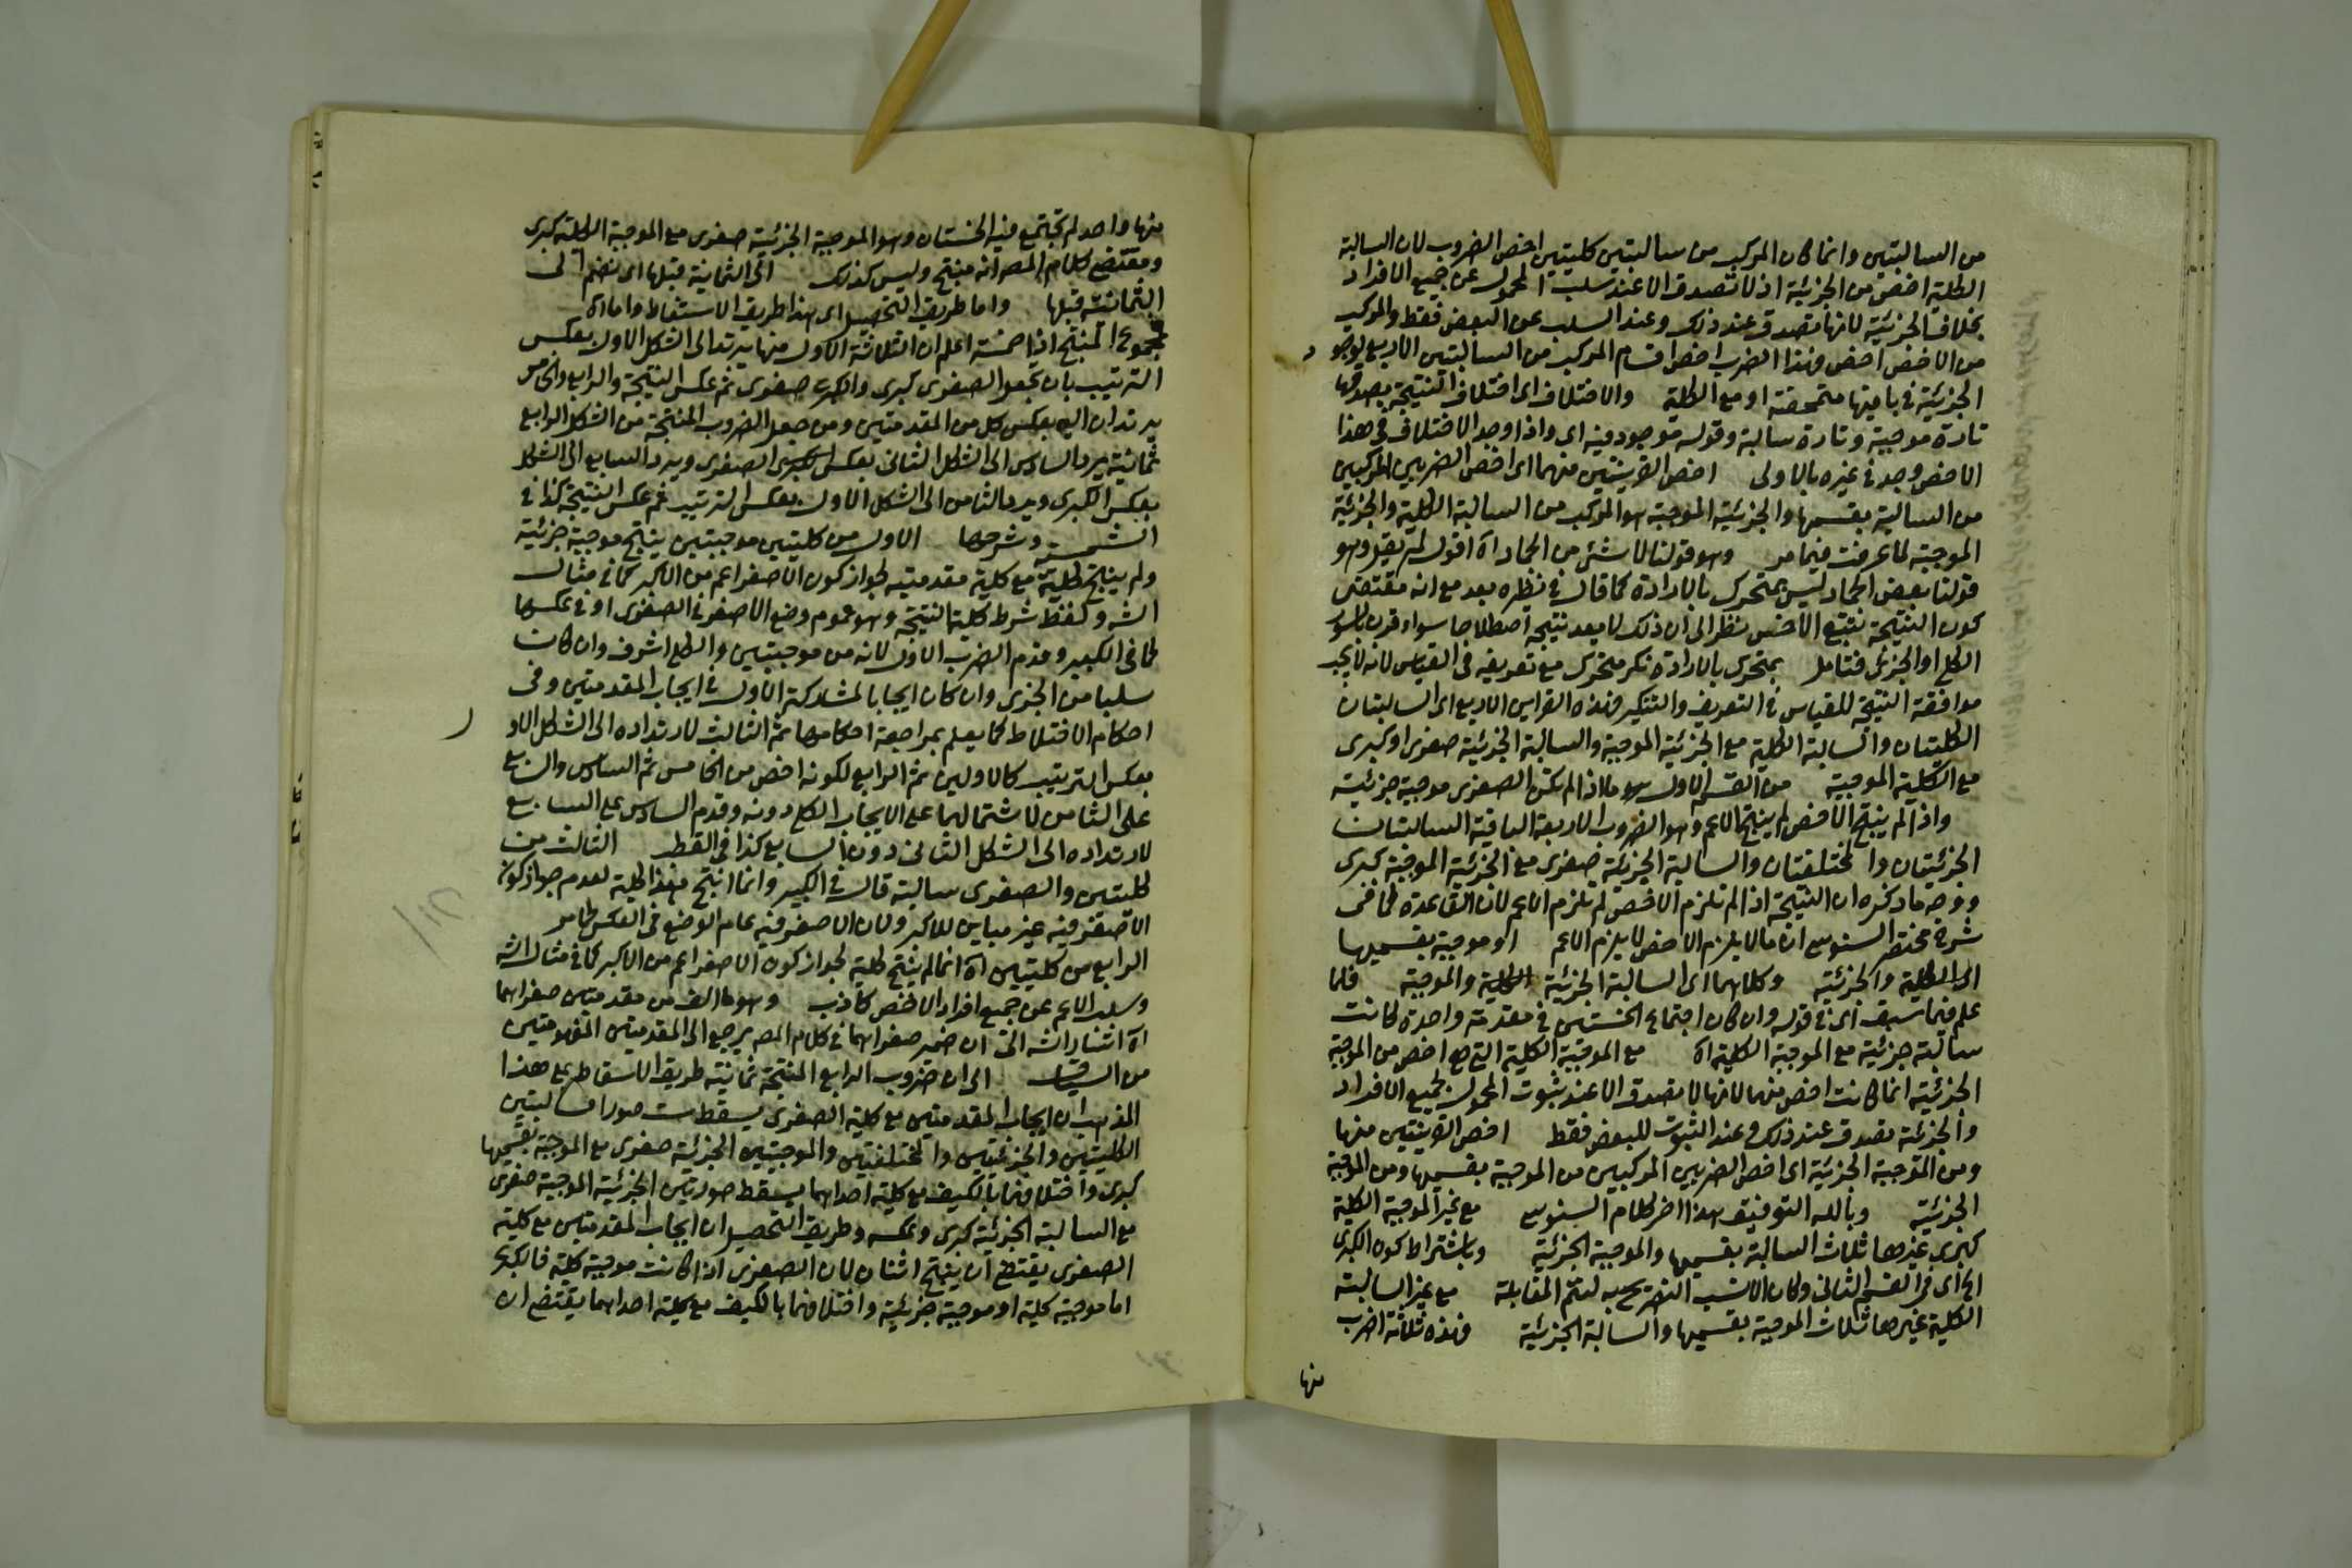 من السالبتين وانما كان المركب من سالبتين كليتين اخص الضروب لان السالبة
الكلية اخص من الجزئية اذ لا تصدق الا عند سلب المحمول عن جميع الافراد
بخلاف الجزئية لانها تصدق عند ذلك وعند السلب عن البعض فقط والمركب
من الاخص اخص فهذا الضرب اخص اقسام المركب من السالبتين الاربع لوجود
الجزئية في باقيها متمحضة او مع الكلية والاختلاف اى اختلاف النتيجة بصدقها
تارة موجبة وتارة سالبة وقوله موجود فيه اى واذا وجد الاختلاف في هذا
الاخص وجد في غيره بالاولى اخص القرينتين منهما اى اخص الضربين المركبين
من السالبة بقسميها والجزئية الموجبة هو المركب من السالبة الكلية والجزئية
الموجبة لما عرفت فيما مر وهو قولنا لا شئ من الجماد اه اقول لم يقل وهو
قولنا بعض الجماد ليس بمتحرك بالارادة كما قال في نظيره بعد مع انه مقتضى
كون النتيجة تتبع الاخس نظرا الى ان ذلك لا يعد نتيجة اصطلاحا سواء قرن بالسور
الكلى او الجزئى فتامل بمتحرك بالارادة نكر متحرك مع تعريفه في القياس لانه لا يجب
موافقة النتيجة للقياس في التعريف والتنكير فهذه القراين الاربع اى السالبتان
الكليتان والسالبة الكلية مع الجزئية الموجبة والسالبة الجزئية صغرى او كبرى
مع الكلية الموجبة من القسم الاول هو ما اذا لم تكن الصغرى موجبة جزئية
واذا لم ينتج الاخص لم ينتج الاعم وهو الضروب الاربعة الباقية السالبتان
الجزئيتان والمختلفتان والسالبة الجزئية صغرى مع الجزئية الموجبة كبرى
ووجه ما ذكره ان النتيجة اذا لم تلزم الاخص لم تلزم الاعم لان القاعدة كما في
شرح مختصر السنوسى ان ما لا يلزم الاخص لا يلزم الاعم او موجبة بقسميها
اى الكلية والجزئية وكلاهما اى السالبة الجزئية الكلية والموجبة فلما
علم فيما سبق اى في قوله وان كان اجتماع الخستين في مقدمة واحدة كانت
سالبة جزئية مع الموجبة الكلية اه مع الموجبة الكلية التى هي اخص من الموجبة
الجزئية انما كانت اخص منها لانها لا تصدق الا عند ثبوت المحمول لجميع الافراد
والجزئية تصدق عند ذلك وعند الثبوت للبعض فقط اخص القرينتين منها
ومن الموجبة الجزئية اى اخص الضربين المركبين من الموجبة بقسميها ومن الموجبة
الجزئية وبالله التوفيق هذا اخر كلام السنوسى مع غير الموجبة الكلية
كبرى غيرها ثلاث السالبة بقسميها والموجبة الجزئية وباشتراط كون الكبرى
الخ اى في القسم الثانى وكان الانسب التصريح به لتتم المقابلة مع غير السالبة
الكلية غيرها ثلاث الموجبة بقسميها والسالبة الجزئية فهذه ثلاثة اضرب
منها
منها واحد لم تجتمع فيه الخستان وهو الموجبة الجزئية صغرى مع الموجبة الكلية كبرى
ومقتضى كلام المصـ انه منتج وليس كذلك الى الثمانية قبلها اى نضم الى
الثمانية قبلها واما طريق التحصيل اى هذا طريق الاسقاط واما اه
فمجموع المنتج اذا خمسة اعلم ان الثلاثة الاول منها يرتد الى الشكل الاول بعكس
الترتيب بان تجعل الصغرى كبرى والكبرى صغرى ثم عكس النتيجة والرابع والخامس
يرتدان اليه بعكس كل من المقدمتين ومن جعل الضروب المنتجة من الشكل الرابع
ثمانية يرد السادس الى الشكل الثانى بعكس الصغرى ويرد السابع الى الشكل
بعكس الكبرى ويرد الثامن الى الشكل الاول بعكس الترتيب ثم عكس النتيجة كذا في
الشمسية وشرحها الاول من كليتين موجبتين ينتج موجبة جزئية
ولم ينتج كلية مع كلية مقدمتيه لجواز كون الاصغر اعم من الاكبر كما في مثال
الشـ وكفقد شرط كلية النتيجة وهو عموم وضع الاصغر في الصغرى او في عكسها
كما في الكبير وقدم الضرب الاول لانه من موجبتين والكلى اشرف وان كان
سلبا من الجزئى وان كان ايجابا لمشاركته الاول في ايجاب المقدمتين وفى
احكام الاختلاط كما يعلم بمراجعة احكامها ثم الثالث لارتداده الى الشكل الاول
بعكس الترتيب كالاولين ثم الرابع لكونه اخص من الخامس ثم السادس والسابع
على الثامن لاشتمالهما على الايجاب الكلى دونه وقدم السادس على السابع
لارتداده الى الشكل الثانى دون السابع كذا في القطب الثالث من
كليتين والصغرى سالبة قال في الكبير وانما انتج هذا كلية لعدم جواز كون
الاصغر فيه غير مباين للاكبر ولان الاصغر فيه عام الوضع في العكس كما مر
الرابع من كليتين اه انما لم ينتج كلية لجواز كون الاصغر اعم من الاكبر كما في مثال الشـ
وسلب الاعم عن جميع افراد الاخص كاذب وهو ما الف من مقدمتين صغراهما
اه اشار الشـ الى ان ضمير صغراهما في كلام المصـ يرجع الى المقدمتين المفهومتين
من السياق الى ان ضروب الرابع المنتجة ثمانية طريق الاسقاط على هذا
المذهب ان ايجاب المقدمتين مع كلية الصغرى يسقط ست صور السالبتين
الكليتين والجزئيتين والمختلفتين والموجبتين الجزئية صغرى مع الموجبة بقسميها
كبرى واختلافهما بالكيف مع كلية احداهما يسقط صورتين الجزئية الموجبة صغرى
مع السالبة الجزئية كبرى وعكسه وطريق التحصيل ان ايجاب المقدمتين مع كلية
الصغرى يقتضى ان ينتج اثنان لان الصغرى اذا كانت موجبة كلية فالكبرى
اما موجبة كلية او موجبة جزئية واختلافهما بالكيف مع كلية احداهما يقتضى ان